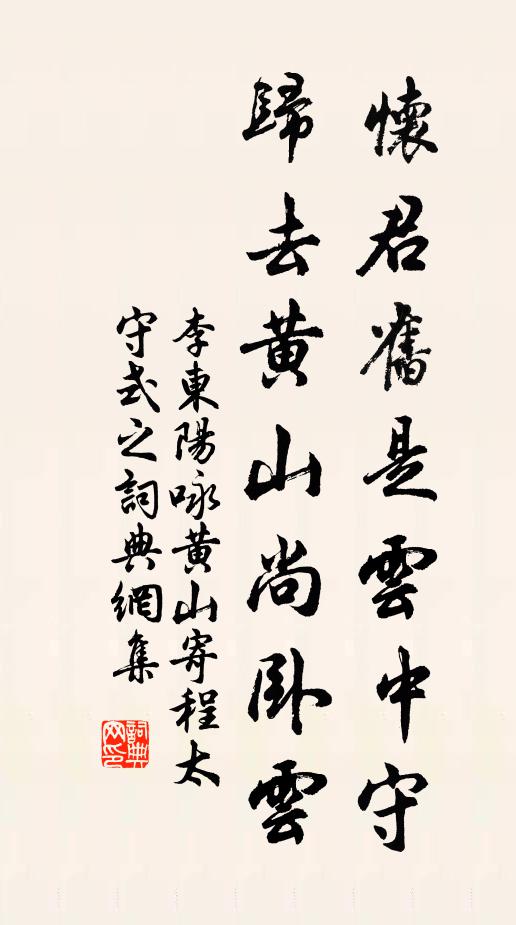 懷君舊是雲中守
歸去黃山尚卧雲
李東陽咏黃山寄程太
守式之詞典網集
詞典網印